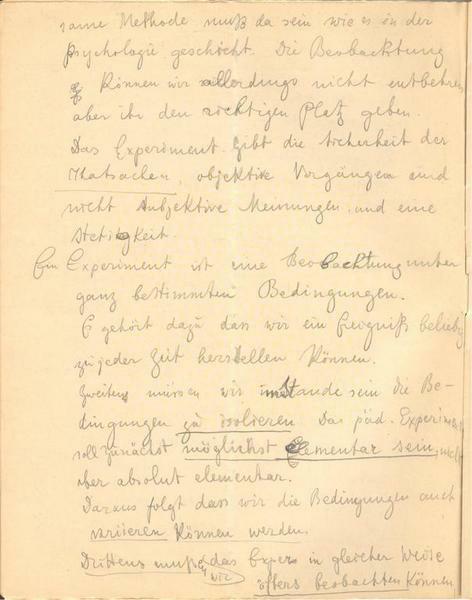 same Methode muß da sein wie es in der
psychologie geschieht. Die Beobachtung
können wir allerdings nicht entbehren
aber ihr den richtigen Platz geben.
Das Experiment gibt die Sicherheit der
Thatsachen, objektive Vorgängen und
nicht subjektive Meinungen, und eine
Stetigkeit.
Ein Experiment ist eine Beobachtung unter
ganz bestimmten Bedingungen.
E gehört dazu dass wir ein Ereigniß beliebig
zu jeder Zeit herstellen können.
Zweitens müssen wir imStande sein die Be-
dingungen zu isolieren Das päd. Experiment
soll zunächst möglichst elementar sein, nicht
aber absolut elementar.
Daraus folgt dass wir die Bedingungen auch
variieren können werden.
Drittens muß das Exper. in gleicher Weise
wir öfters beobachten können